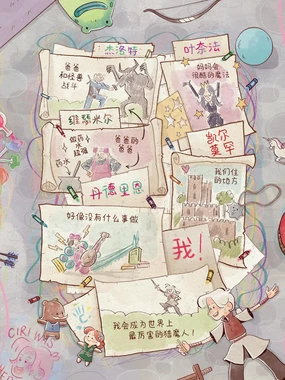 杰洛特
叶奈法
爸爸
和怪兽
战斗
妈妈会
很酷的魔法
维瑟米尔
凯尔
莫罕
做药
水超强
药水
爸爸的
爸爸
我们住
的地方
丹德里恩
好像没有什么事做
我！
我会成为世界上
最厉害的猎魔人！
CIRI WAS